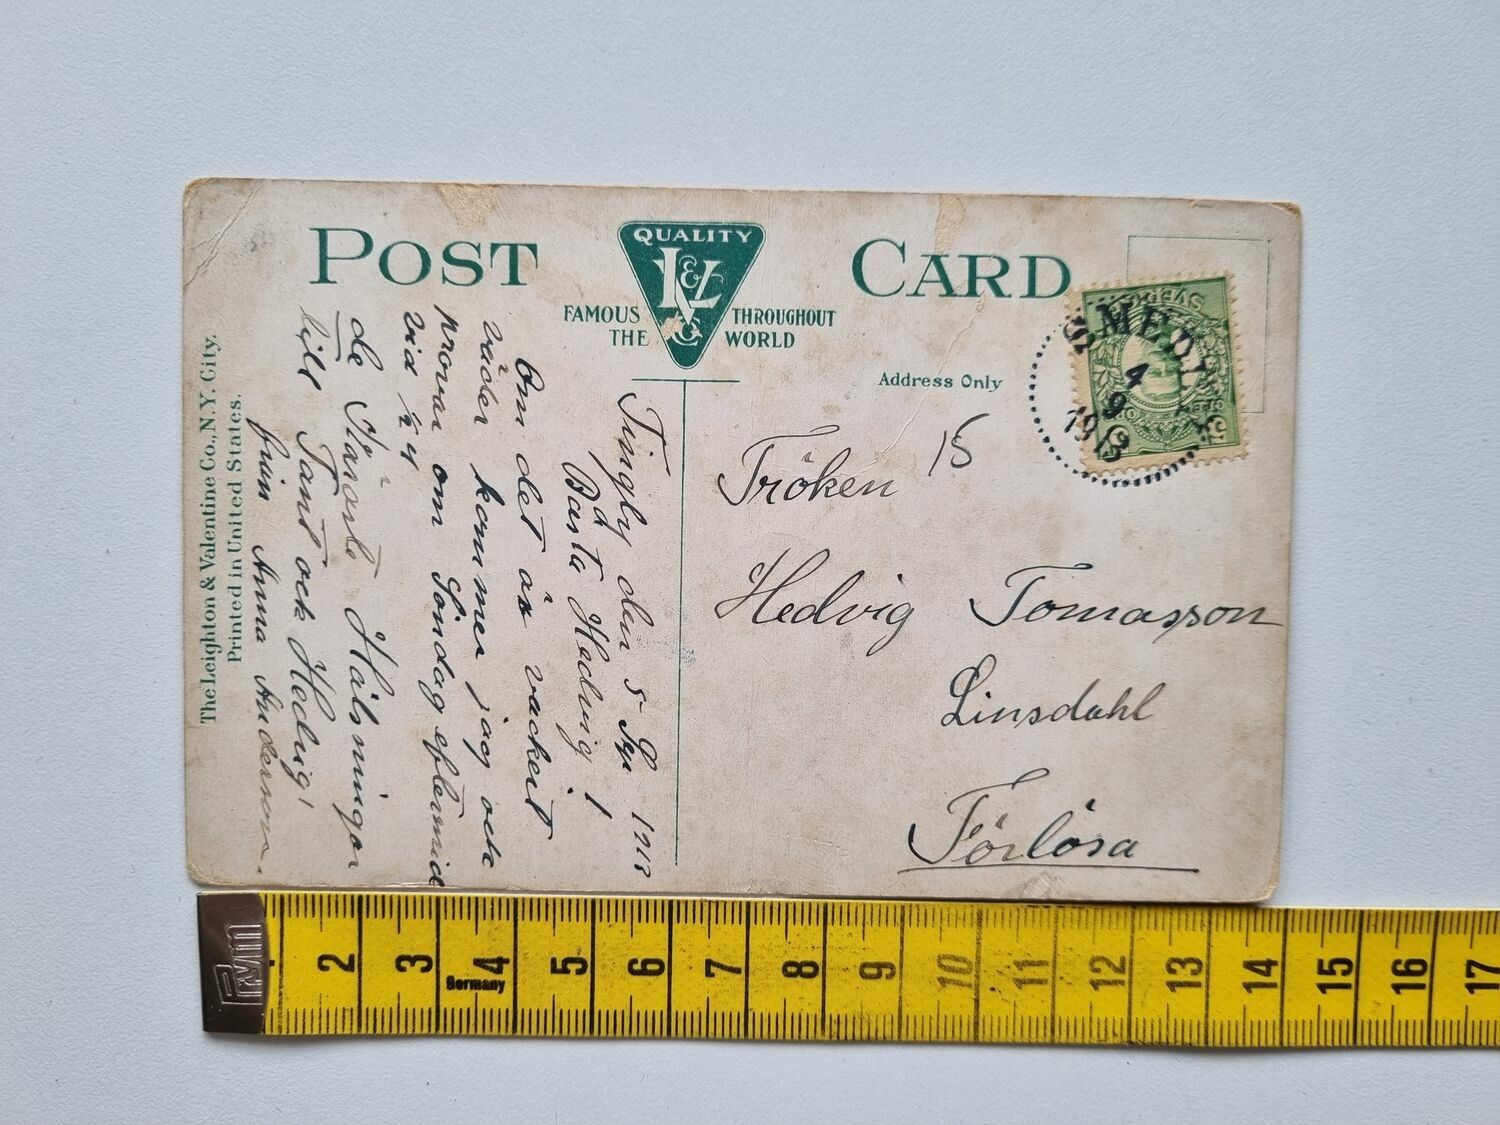 POST CARD
QUALITY
L&V
FAMOUS THROUGHOUT
THE WORLD
Address Only
The Leighton & Valentine Co., N.Y. City.
Printed in United States.
SVERIGE
5
4
9
1913
15
Fröken
Hedvig Tomasson
Linsdahl
Förlösa
Tingby den 5 1913
Basta Hedvig!
Om det är vackert
väder kommer jag och
provar om Söndag eftermid
vid ½ 4
de Hälsningar
till Tant ock Hedvig!
från Anna Anderson.
2 3 4 5 6 7 8 9 10 11 12 13 14 15 16 17
Germany